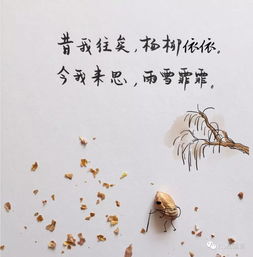 昔我往矣，杨柳依依。
今我来思，雨雪霏霏。